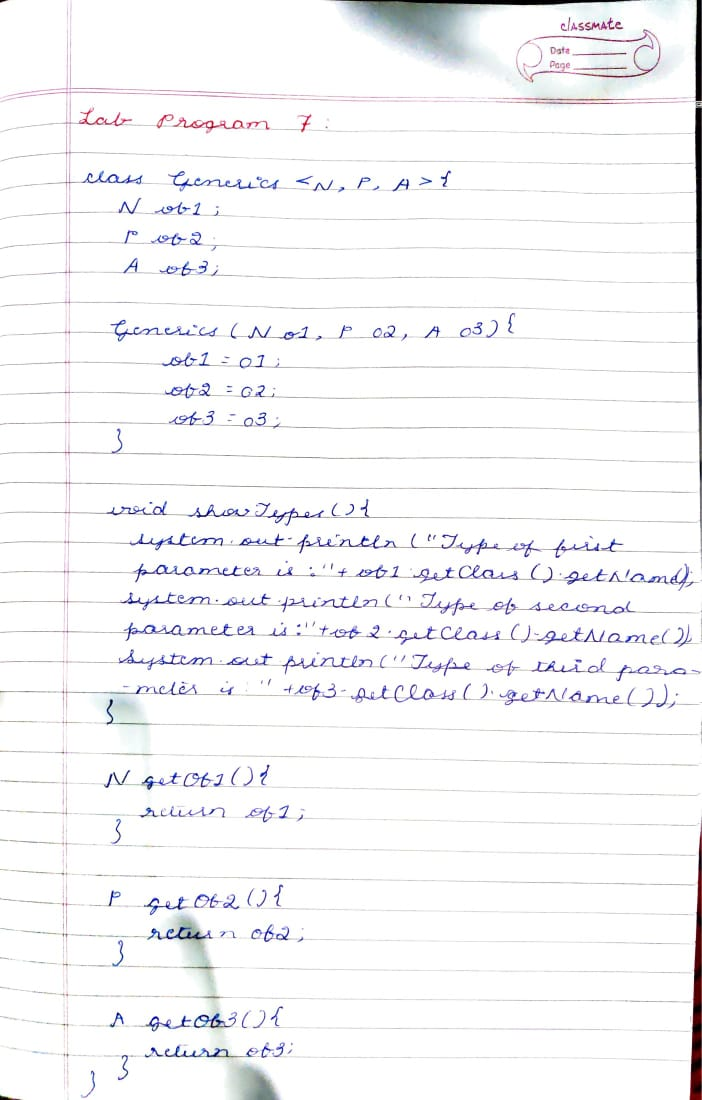 classmate
Date
Page
Lab Program 7:
class Generics <N, P, A>{
N ob1;
P ob2;
A ob3;
Generics (N o1, P o2, A o3){
ob1 = o1;
ob2 = o2;
ob3 = o3;
}
void showTypes(){
system.out.println ("Type of first
parameter is :"+ ob1.getClass().getName);
system.out.println ("Type of second
parameter is:"+ob2.getClass().getName())
System.out println ("Type of third para-
-meter is :" +ob3.getClass().getName());
}
N getOb1(){
return ob1;
}
P getOb2(){
return ob2;
}
A getOb3(){
return ob3;
}
}